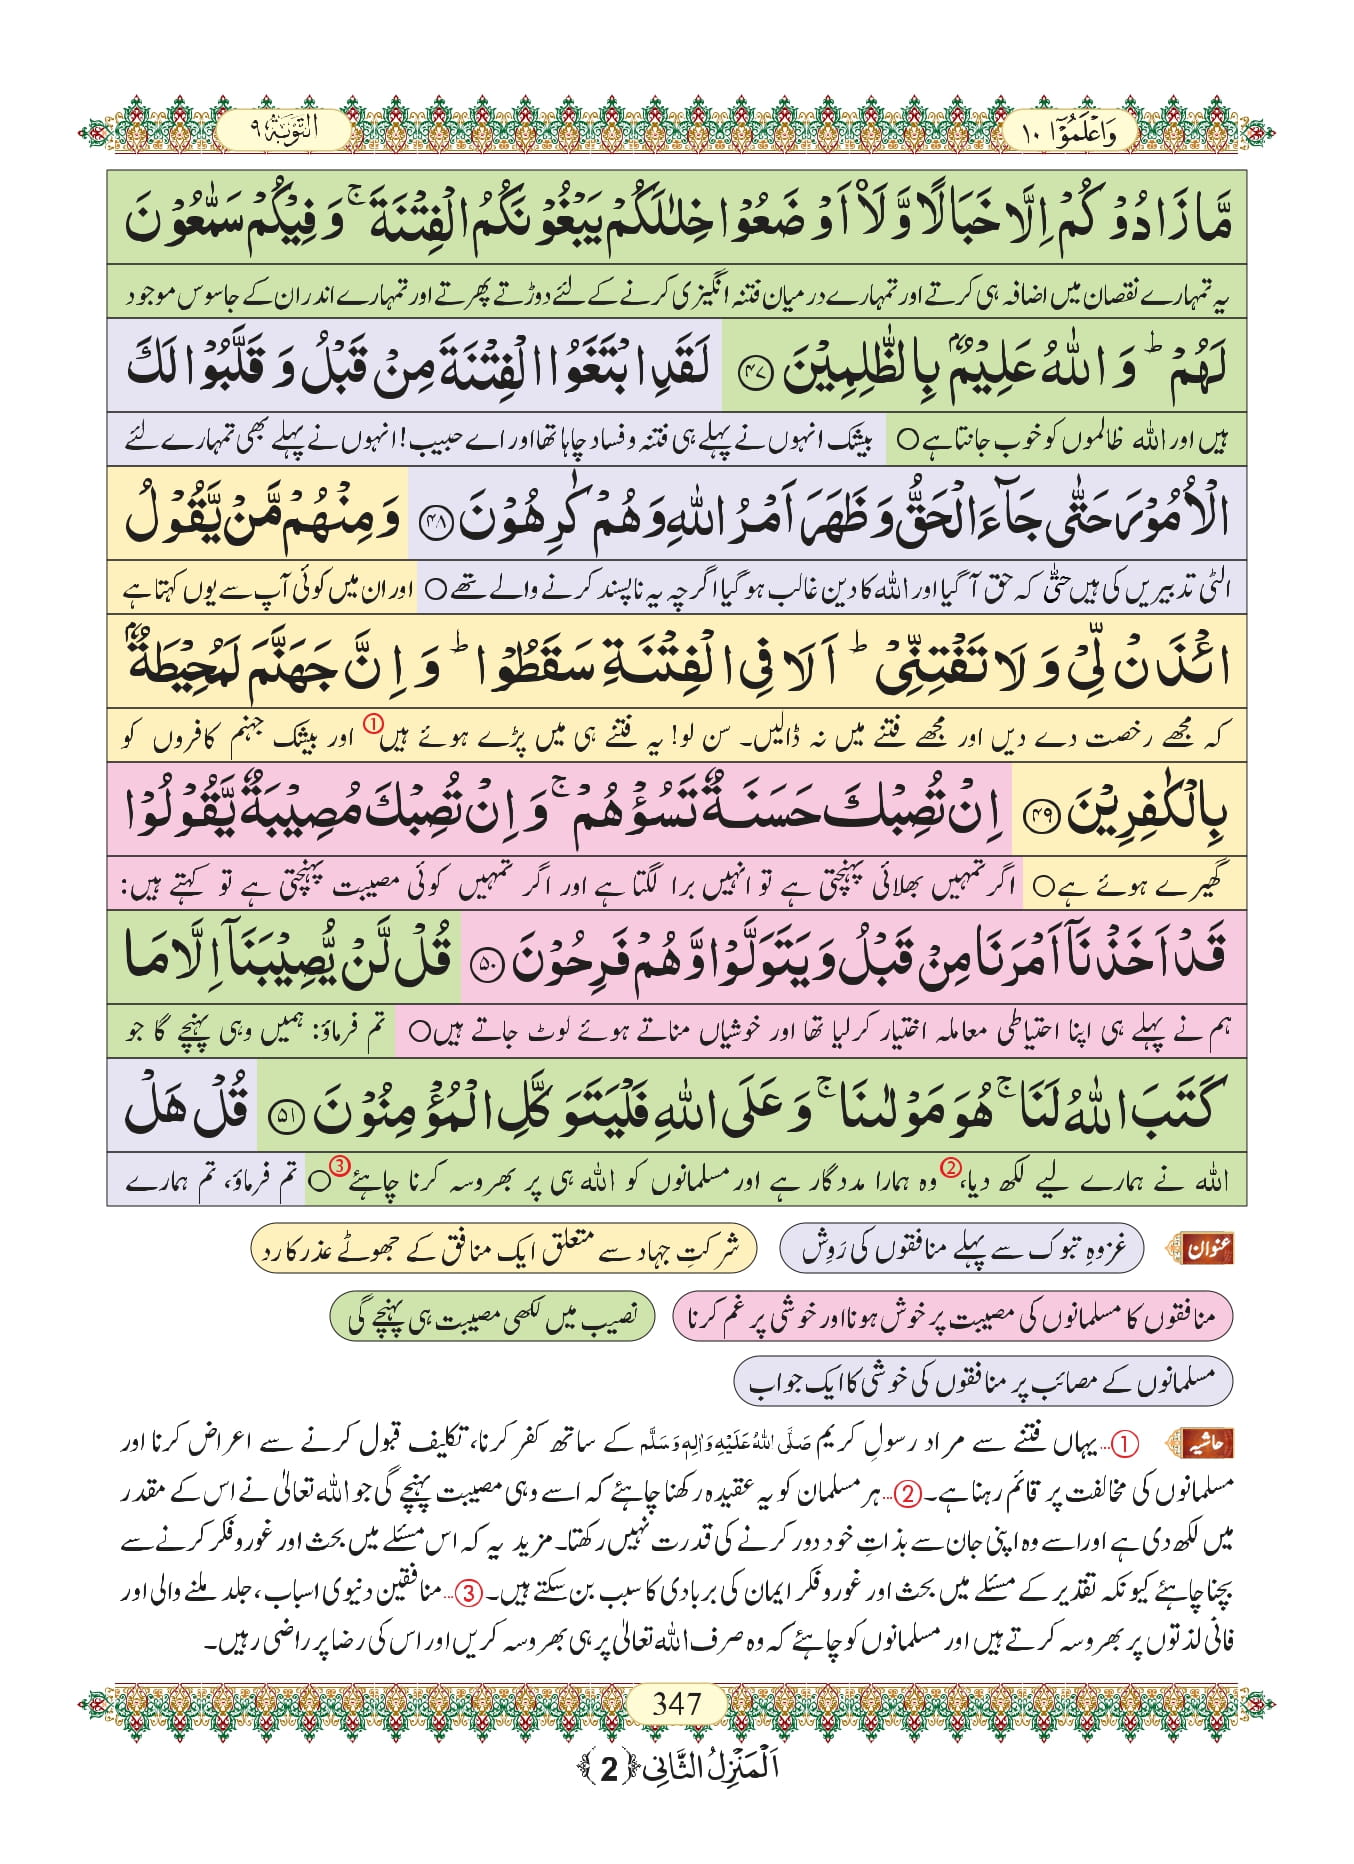 وَاعْلَمُوْۤا ۱۰
التَّوْبَۃ ۹
مَّا زَادُوْكُمْ اِلَّا خَبَالًا وَّ لَاۡاَوْضَعُوْا خِلٰلَكُمْ یَبْغُوْنَكُمُ الْفِتْنَةَ ۚ وَ فِیْكُمْ سَمّٰعُوْنَ
یہ تمہارے نقصان میں اضافہ ہی کرتے اور تمہارے درمیان فتنہ انگیزی کرنے کے لئے دوڑتے پھرتے اور تمہارے اندر ان کے جاسوس موجود
لَهُمْ ؕ وَ اللّٰهُ عَلِیْمٌۢ بِالظّٰلِمِیْنَ ﴿۴۷﴾ لَقَدِ ابْتَغَوُا الْفِتْنَةَ مِنْ قَبْلُ وَ قَلَّبُوْا لَكَ
ہیں اور اللہ ظالموں کو خوب جانتا ہے ○ بیشک انہوں نے پہلے ہی فتنہ و فساد چاہا تھا اور اے حبیب! انہوں نے پہلے بھی تمہارے لئے
الْاُمُوْرَ حَتّٰى جَآءَ الْحَقُّ وَ ظَهَرَ اَمْرُ اللّٰهِ وَ هُمْ كٰرِهُوْنَ ﴿۴۸﴾ وَ مِنْهُمْ مَّنْ یَّقُوْلُ
الٹی تدبیریں کی ہیں حتّٰی کہ حق آگیا اور اللہ کا دین غالب ہوگیا اگرچہ یہ ناپسند کرنے والے تھے ○ اور ان میں کوئی آپ سے یوں کہتا ہے
ائْذَنْ لِّیْ وَ لَا تَفْتِنِّیْ ؕ اَلَا فِی الْفِتْنَةِ سَقَطُوْا ؕ وَ اِنَّ جَهَنَّمَ لَمُحِیْطَةٌۢ
کہ مجھے رخصت دے دیں اور مجھے فتنے میں نہ ڈالیں۔ سن لو! یہ فتنے ہی میں پڑے ہوئے ہیں① اور بیشک جہنم کافروں کو
بِالْكٰفِرِیْنَ ﴿۴۹﴾ اِنْ تُصِبْكَ حَسَنَةٌ تَسُؤْهُمْ ۚ وَ اِنْ تُصِبْكَ مُصِیْبَةٌ یَّقُوْلُوْا
گھیرے ہوئے ہے ○ اگر تمہیں بھلائی پہنچتی ہے تو انہیں برا لگتا ہے اور اگر تمہیں کوئی مصیبت پہنچتی ہے تو کہتے ہیں:
قَدْ اَخَذْنَاۤ اَمْرَنَا مِنْ قَبْلُ وَ یَتَوَلَّوْا وَّ هُمْ فَرِحُوْنَ ﴿۵۰﴾ قُلْ لَّنْ یُّصِیْبَنَاۤ اِلَّا مَا
ہم نے پہلے ہی اپنا احتیاطی معاملہ اختیار کرلیا تھا اور خوشیاں مناتے ہوئے لوٹ جاتے ہیں ○ تم فرماؤ: ہمیں وہی پہنچے گا جو
كَتَبَ اللّٰهُ لَنَا ۚ هُوَ مَوْلٰىنَا ۚ وَ عَلَى اللّٰهِ فَلْیَتَوَكَّلِ الْمُؤْمِنُوْنَ ﴿۵۱﴾ قُلْ هَلْ
اللہ نے ہمارے لیے لکھ دیا،② وہ ہمارا مددگار ہے اور مسلمانوں کو اللہ ہی پر بھروسہ کرنا چاہئے③ ○ تم فرماؤ، تم ہمارے
عنوان غزوہِ تبوک سے پہلے منافقوں کی رَوِش شرکتِ جہاد سے متعلق ایک منافق کے جھوٹے عذر کا رد
منافقوں کا مسلمانوں کی مصیبت پر خوش ہونا اور خوشی پر غم کرنا نصیب میں لکھی مصیبت ہی پہنچے گی
مسلمانوں کے مصائب پر منافقوں کی خوشی کا ایک جواب
حاشیہ ①... یہاں فتنے سے مراد رسولِ کریم صَلَّی اللّٰہُ عَلَیْہِ وَاٰلِہٖ وَسَلَّم کے ساتھ کفر کرنا، تکلیف قبول کرنے سے اعراض کرنا اور
مسلمانوں کی مخالفت پر قائم رہنا ہے۔ ②... ہر مسلمان کو یہ عقیدہ رکھنا چاہئے کہ اسے وہی مصیبت پہنچے گی جو اللہ تعالیٰ نے اس کے مقدر
میں لکھ دی ہے اور اسے وہ اپنی جان سے بذاتِ خود دور کرنے کی قدرت نہیں رکھتا۔ مزید یہ کہ اس مسئلے میں بحث اور غور و فکر کرنے سے
بچنا چاہئے کیونکہ تقدیر کے مسئلے میں بحث اور غور و فکر ایمان کی بربادی کا سبب بن سکتے ہیں۔ ③... منافقین دنیوی اسباب، جلد ملنے والی اور
فانی لذتوں پر بھروسہ کرتے ہیں اور مسلمانوں کو چاہئے کہ وہ صرف اللہ تعالیٰ پر ہی بھروسہ کریں اور اس کی رضا پر راضی رہیں۔
347
اَلْمَنْزِلُ الثَّانِی ﴿2﴾